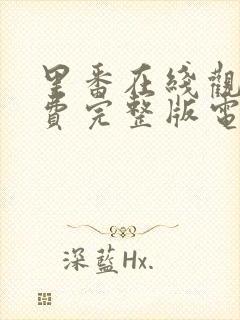 里番在綫觀
費完整版電
深藍Hx.